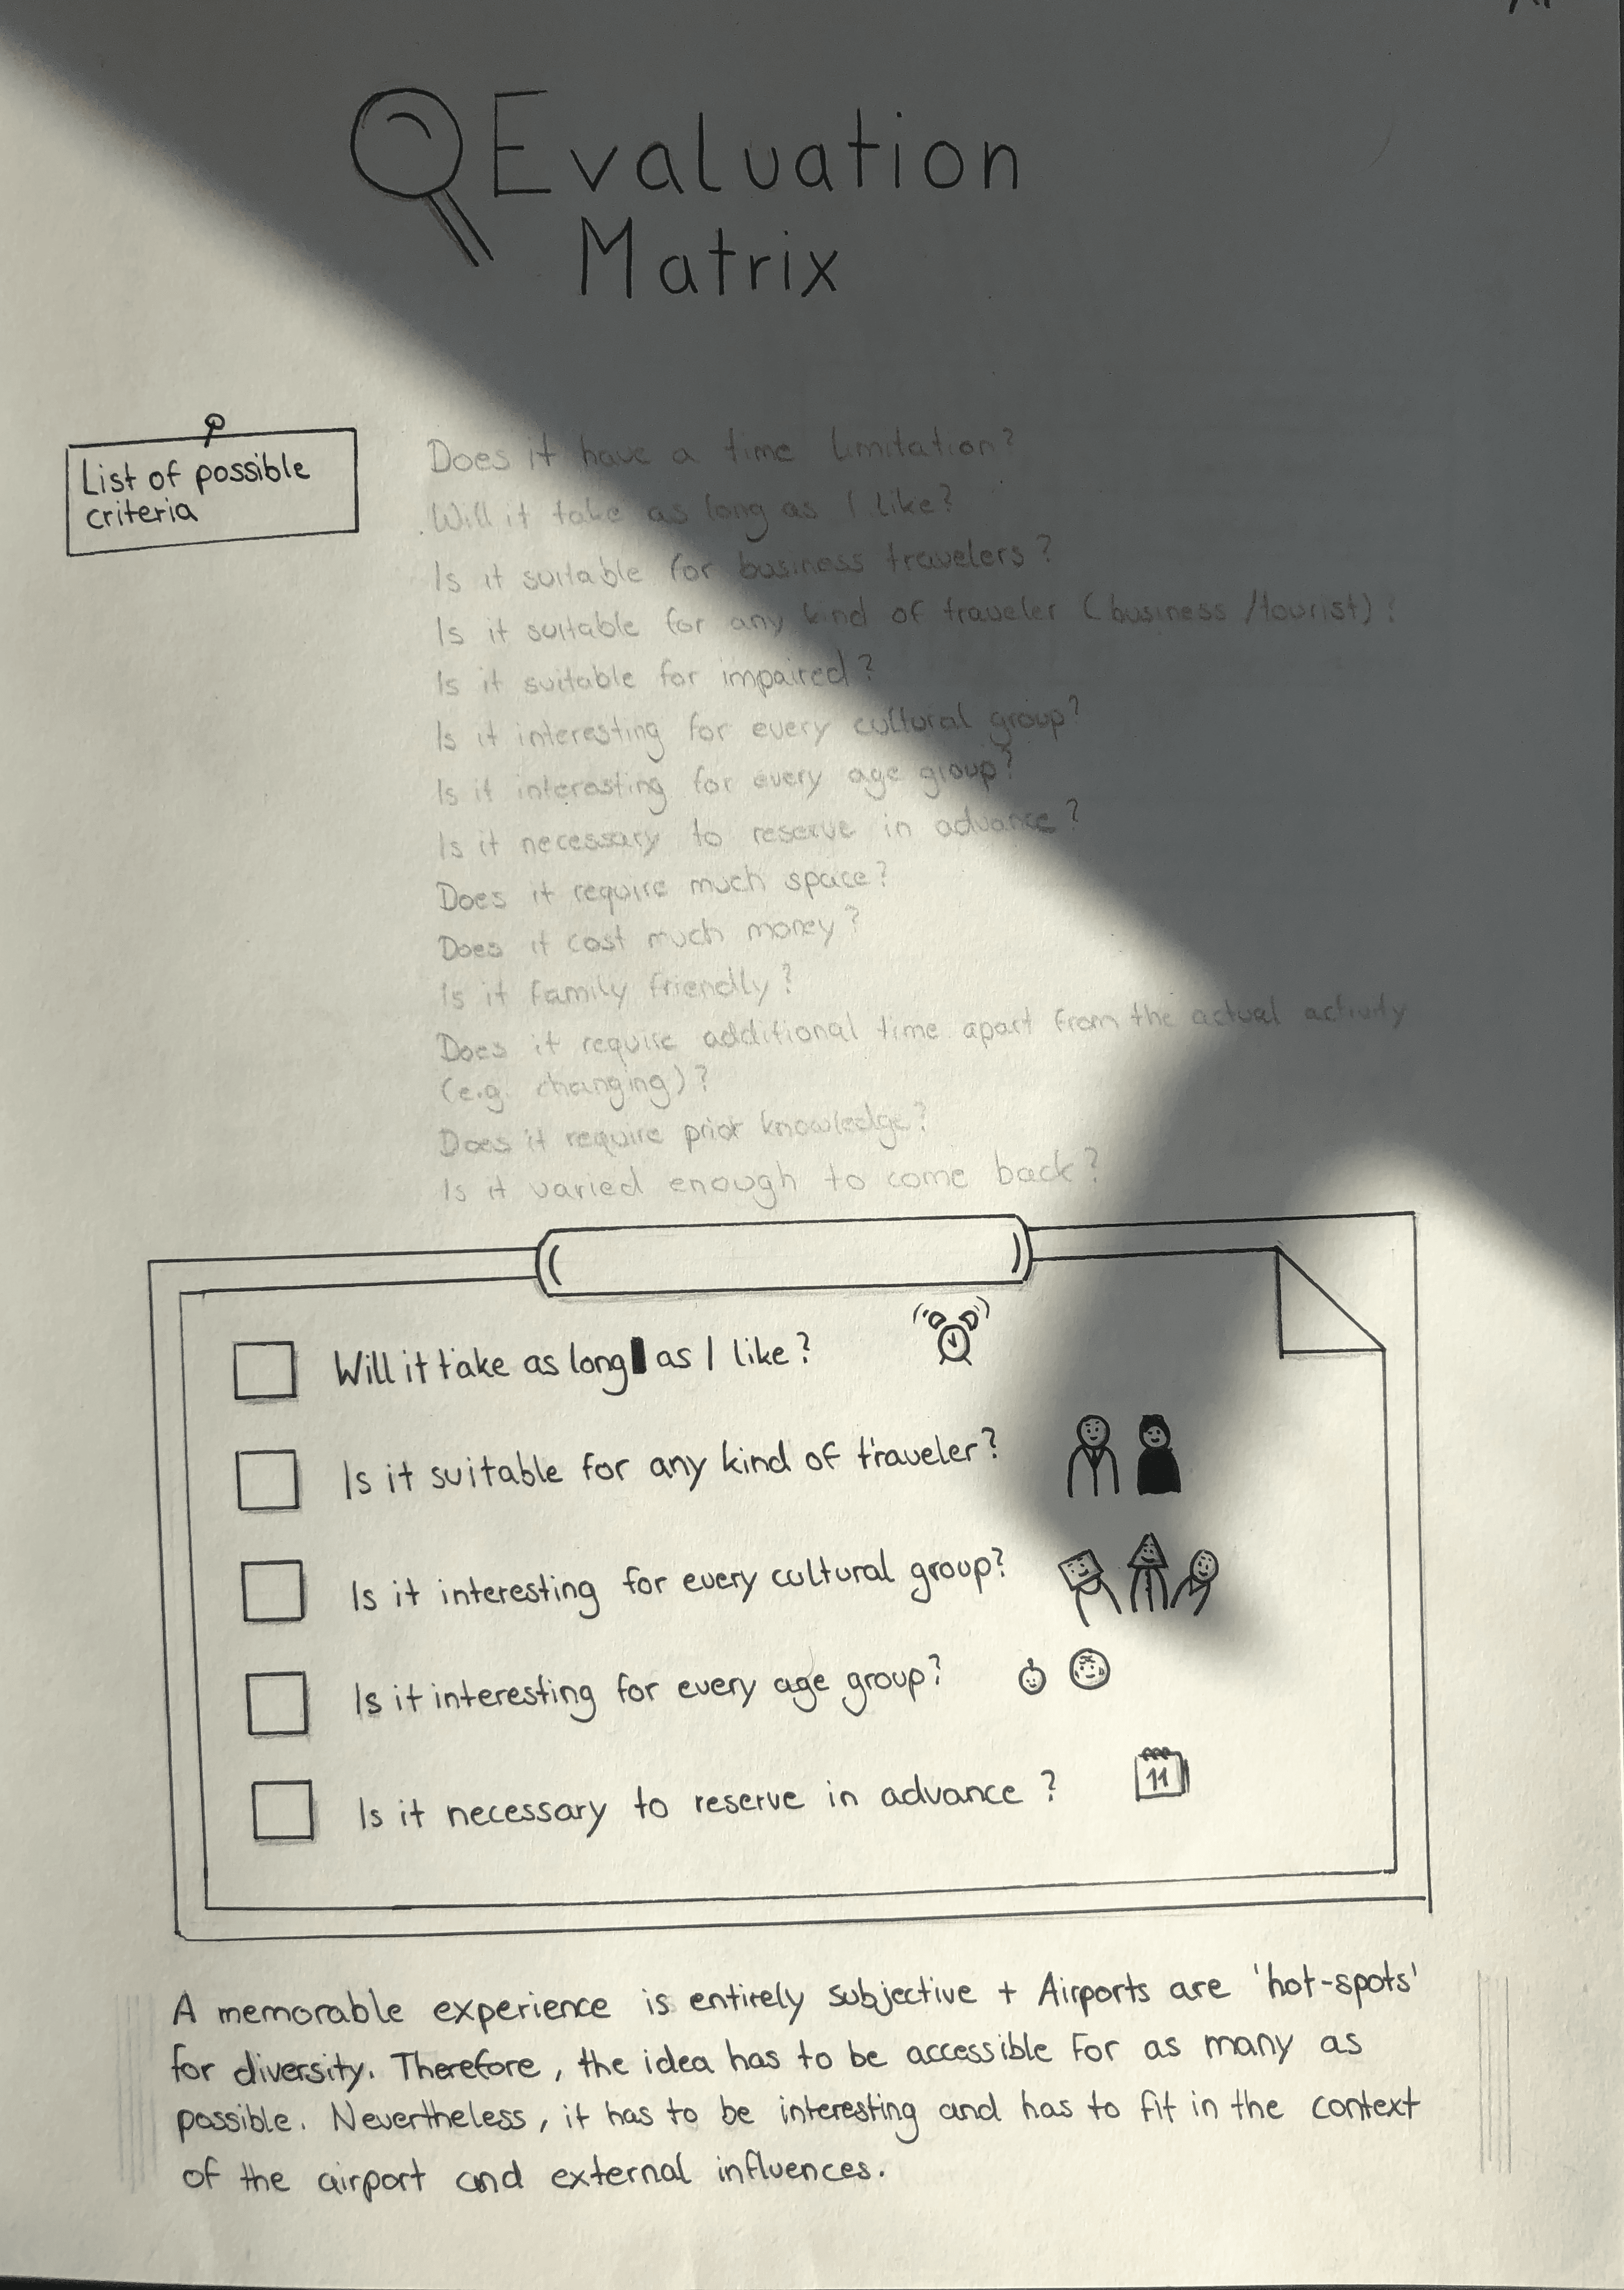 Evaluation
Matrix
List of possible
criteria
Does it have a time limitation?
Will it take as long as I like?
Is it suitable for business travelers?
Is it suitable for any kind of traveler (business/tourist)?
Is it suitable for impaired?
Is it interesting for every cultural group?
Is it interesting for every age group?
Is it necessary to reserve in advance?
Does it require much space?
Does it cost much money?
Is it family friendly?
Does it require additional time apart from the actual activity
(e.g. changing)?
Does it require prior knowledge?
Is it varied enough to come back?
Will it take as long as I like?
Is it suitable for any kind of traveler?
Is it interesting for every cultural group?
Is it interesting for every age group?
Is it necessary to reserve in advance?
11
A memorable experience is entirely subjective + Airports are 'hot-spots'
for diversity. Therefore, the idea has to be accessible for as many as
possible. Nevertheless, it has to be interesting and has to fit in the context
of the airport and external influences.